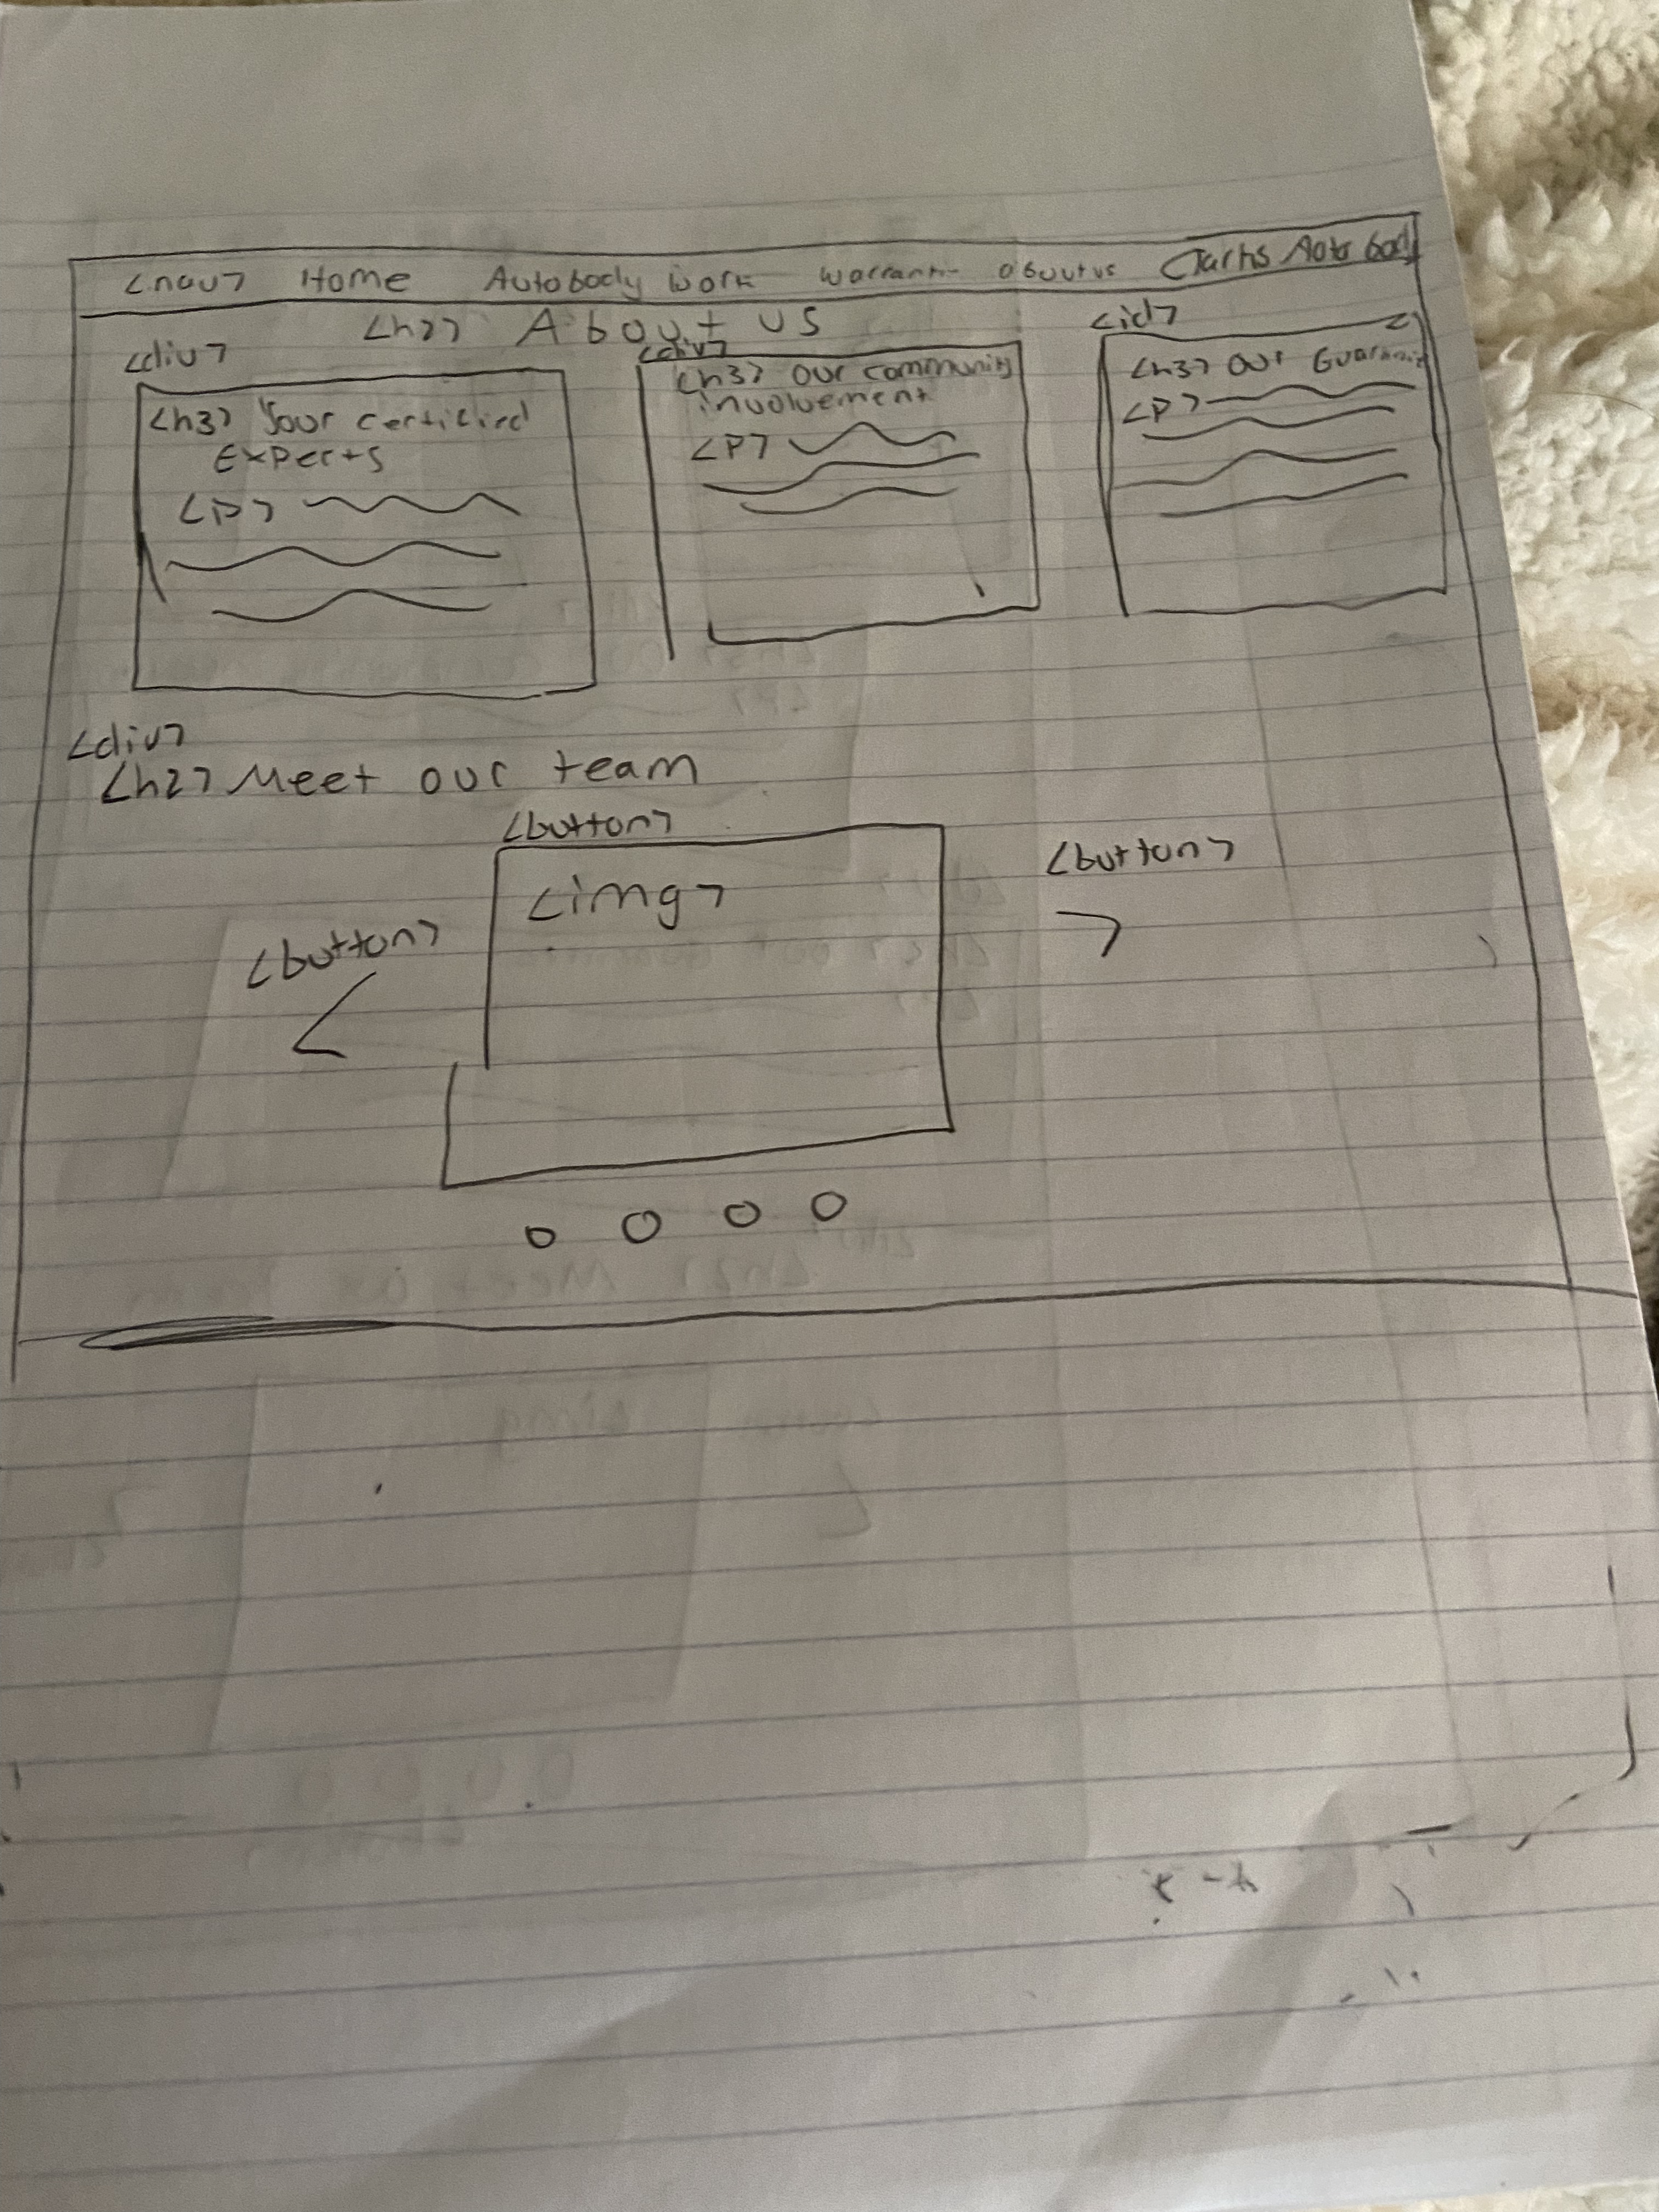 <nav> Home Autobody work warranty about us Clarks Auto body
<h2> About us
<div>
<h3> Your certified
Experts
<p>
<div>
<h3> our community
involvement
<p>
<id>
<h3> our
<p>
<div>
<h2> Meet our team
<button>
<button>
<img>
<button>